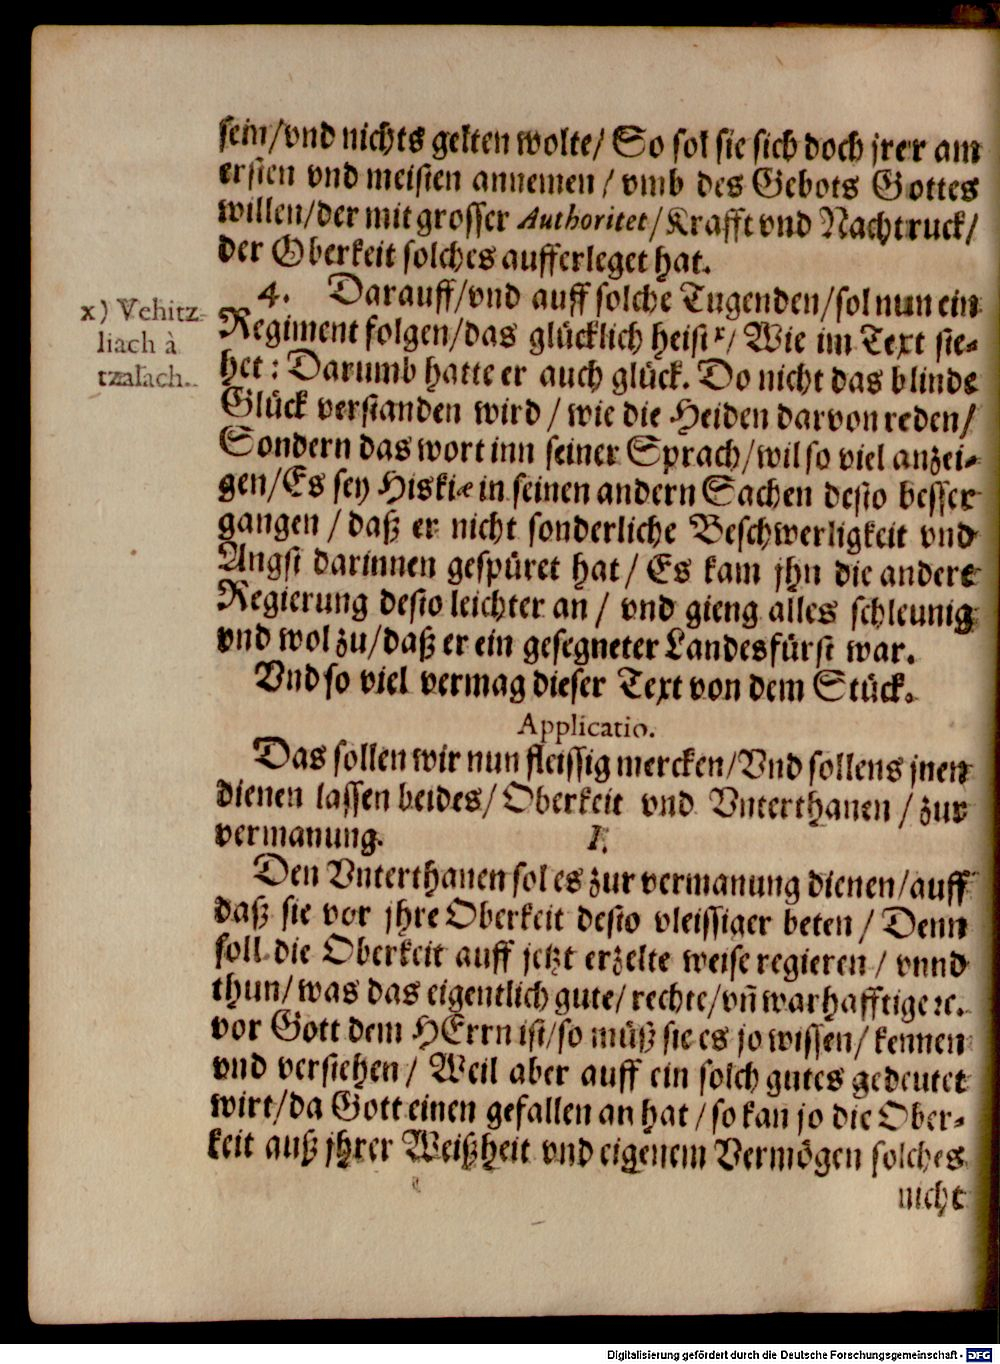 sein/vnd nichts gelten wolte/ So sol sie sich doch jrer am
ersten vnd meisten annemen / vmb des Gebots Gottes
willen/der mit grosser Authoritet/Krafft vnd Nachtruck/
der Oberkeit solches aufferleget hat.
4. Darauff/vnd auff solche Tugenden/sol nun ein
x) Vehitz-
liach à
tzalach.
Regiment folgen/das glücklich heist x/ Wie im Text ste-
het: Darumb hatte er auch glück. Do nicht das blinde
Glück verstanden wird / wie die Heiden darvon reden/
Sondern das wort inn seiner Sprach/wil so viel anzei-
gen/Es sey Hiskiæ in seinen andern Sachen desto besser
gangen / daß er nicht sonderliche Beschwerligkeit vnd
Angst darinnen gespüret hat/ Es kam jhn die andere
Regierung desto leichter an / vnd gieng alles schleunig
vnd wol zu/daß er ein gesegneter Landesfürst war.
Vnd so viel vermag dieser Text von dem Stück.
Applicatio.
Das sollen wir nun fleissig mercken/Vnd sollens jnen
dienen lassen beides/ Oberkeit vnd Vnterthanen / zur
vermanung. I.
Den Vnterthanen sol es zur vermanung dienen/auff
daß sie vor jhre Oberkeit desto vleissiger beten / Denn
soll die Oberkeit auff jetzt erzelte weise regieren / vnnd
thun/ was das eigentlich gute/ rechte/vñ warhafftige ꝛc.
vor Gott dem HErrn ist/so muß sie es jo wissen/ kennen
vnd verstehen/ Weil aber auff ein solch gutes gedeutet
wirt/da Gott einen gefallen an hat / so kan jo die Ober-
keit auß jhrer Weißheit vnd eigenem Vermögen solches
nicht
Digitalisierung gefördert durch die Deutsche Forschungsgemeinschaft - DFG